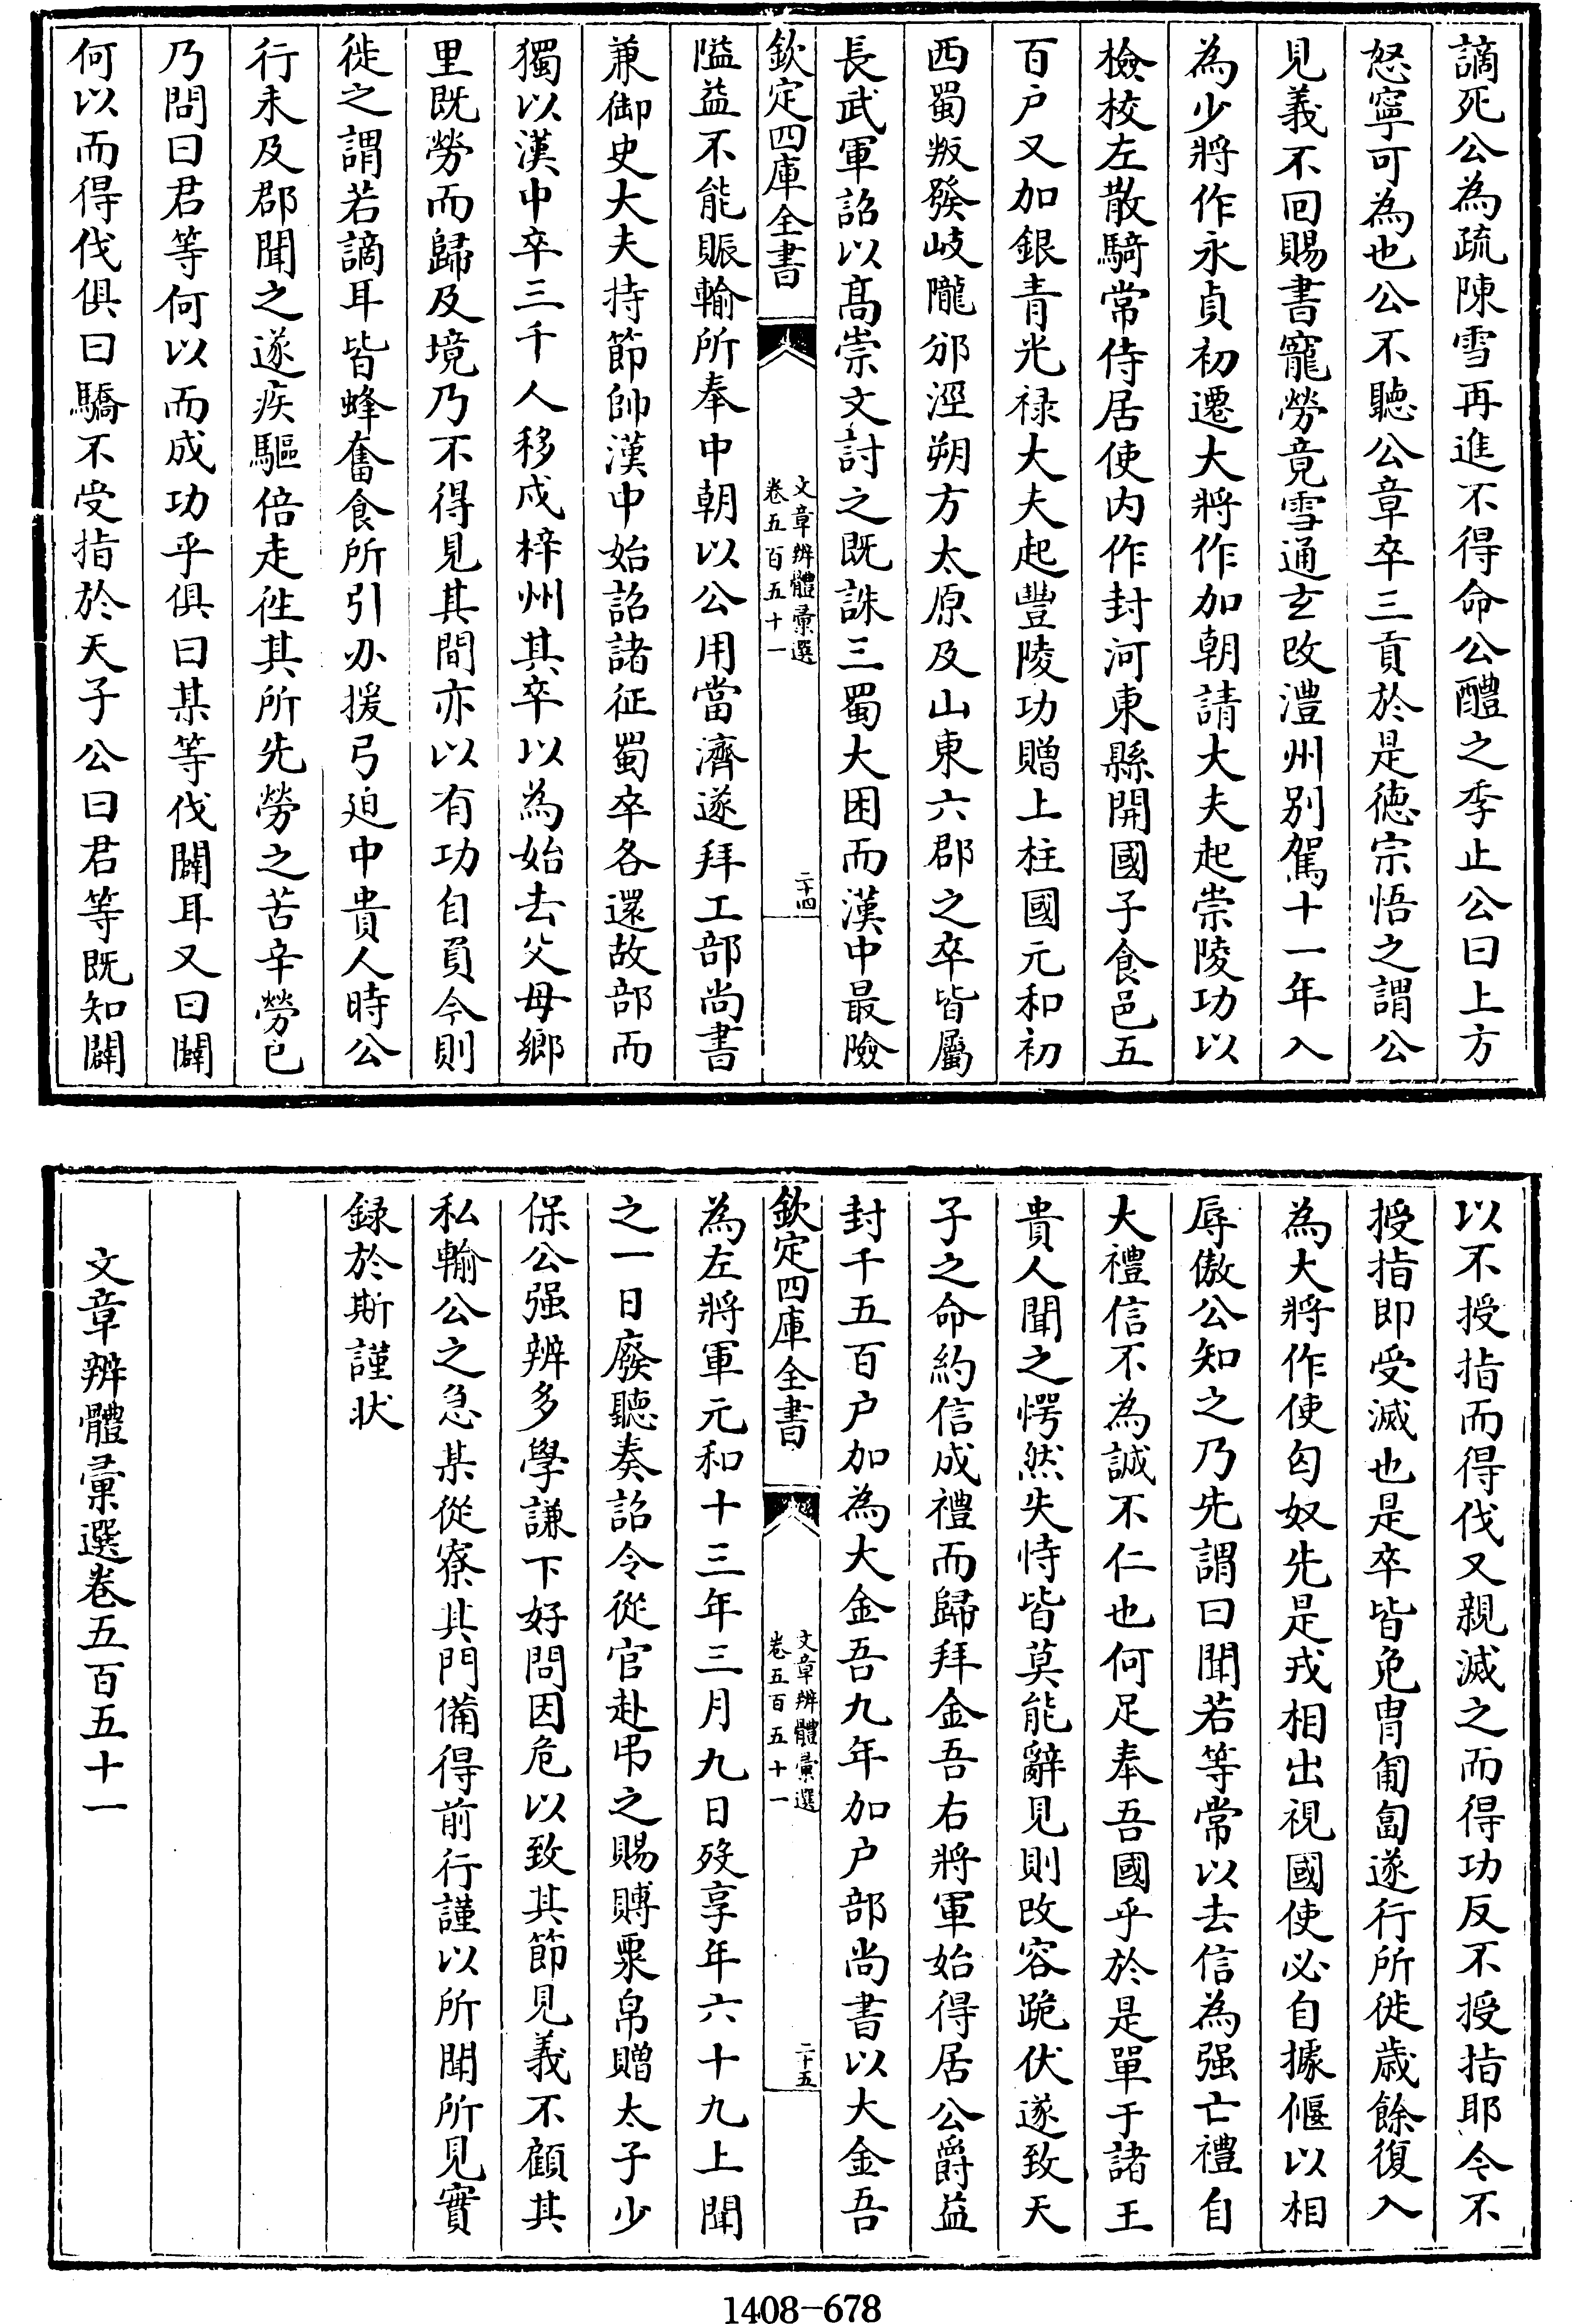 謫死公為疏陳雪再進不得命公醴之季止公曰上方
怒寧可為也公不聽公章卒三貢於是徳宗悟之謂公
見義不回賜書寵勞竟雪通玄改澧州别駕十一年入
為少將作永貞初遷大將作加朝請大夫起崇陵功以
檢校左散騎常侍居使内作封河東縣開國子食邑五
百户又加銀青光禄大夫起豐陵功贈上柱國元和初
西蜀叛發岐隴邠涇朔方太原及山東六郡之卒皆屬
長武軍詔以髙崇文討之既誅三蜀大困而漢中最險
欽定四庫全書
文章辨體彚選
卷五百五十一
二十四
隘益不能賑輸所奉中朝以公用當濟遂拜工部尚書
兼御史大夫持節帥漢中始詔諸征蜀卒各還故部而
獨以漢中卒三千人移戍梓州其卒以為始去父母鄉
里既勞而歸及境乃不得見其間亦以有功自負今則
徙之謂若謫耳皆蜂奮食所引刅援弓廹中貴人時公
行未及郡聞之遂疾驅倍走徃其所先勞之苦辛勞已
乃問曰君等何以而成功乎俱曰某等伐闢耳又曰闢
何以而得伐俱曰驕不受指於天子公曰君等既知闢
以不授指而得伐又親滅之而得功反不授指耶令不
授指即受滅也是卒皆免冑匍匐遂行所徙歳餘復入
為大將作使匈奴先是戎相出視國使必自據偃以相
辱傲公知之乃先謂曰聞若等常以去信為强亡禮自
大禮信不為誠不仁也何足奉吾國乎於是單于諸王
貴人聞之愕然失恃皆莫能辭見則改容跪伏遂致天
子之命約信成禮而歸拜金吾右將軍始得居公爵益
封千五百户加為大金吾九年加户部尚書以大金吾
欽定四庫全書
文章辨體彚選
卷五百五十一
二十五
為左將軍元和十三年三月九日歿享年六十九上聞
之一日廢聽奏詔令從官赴弔之賜賻粟帛贈太子少
保公强辨多學謙下好問因危以致其節見義不顧其
私輸公之急某從寮其門備得前行謹以所聞所見實
録於斯謹状
文章辨體彚選卷五百五十一
1408-678